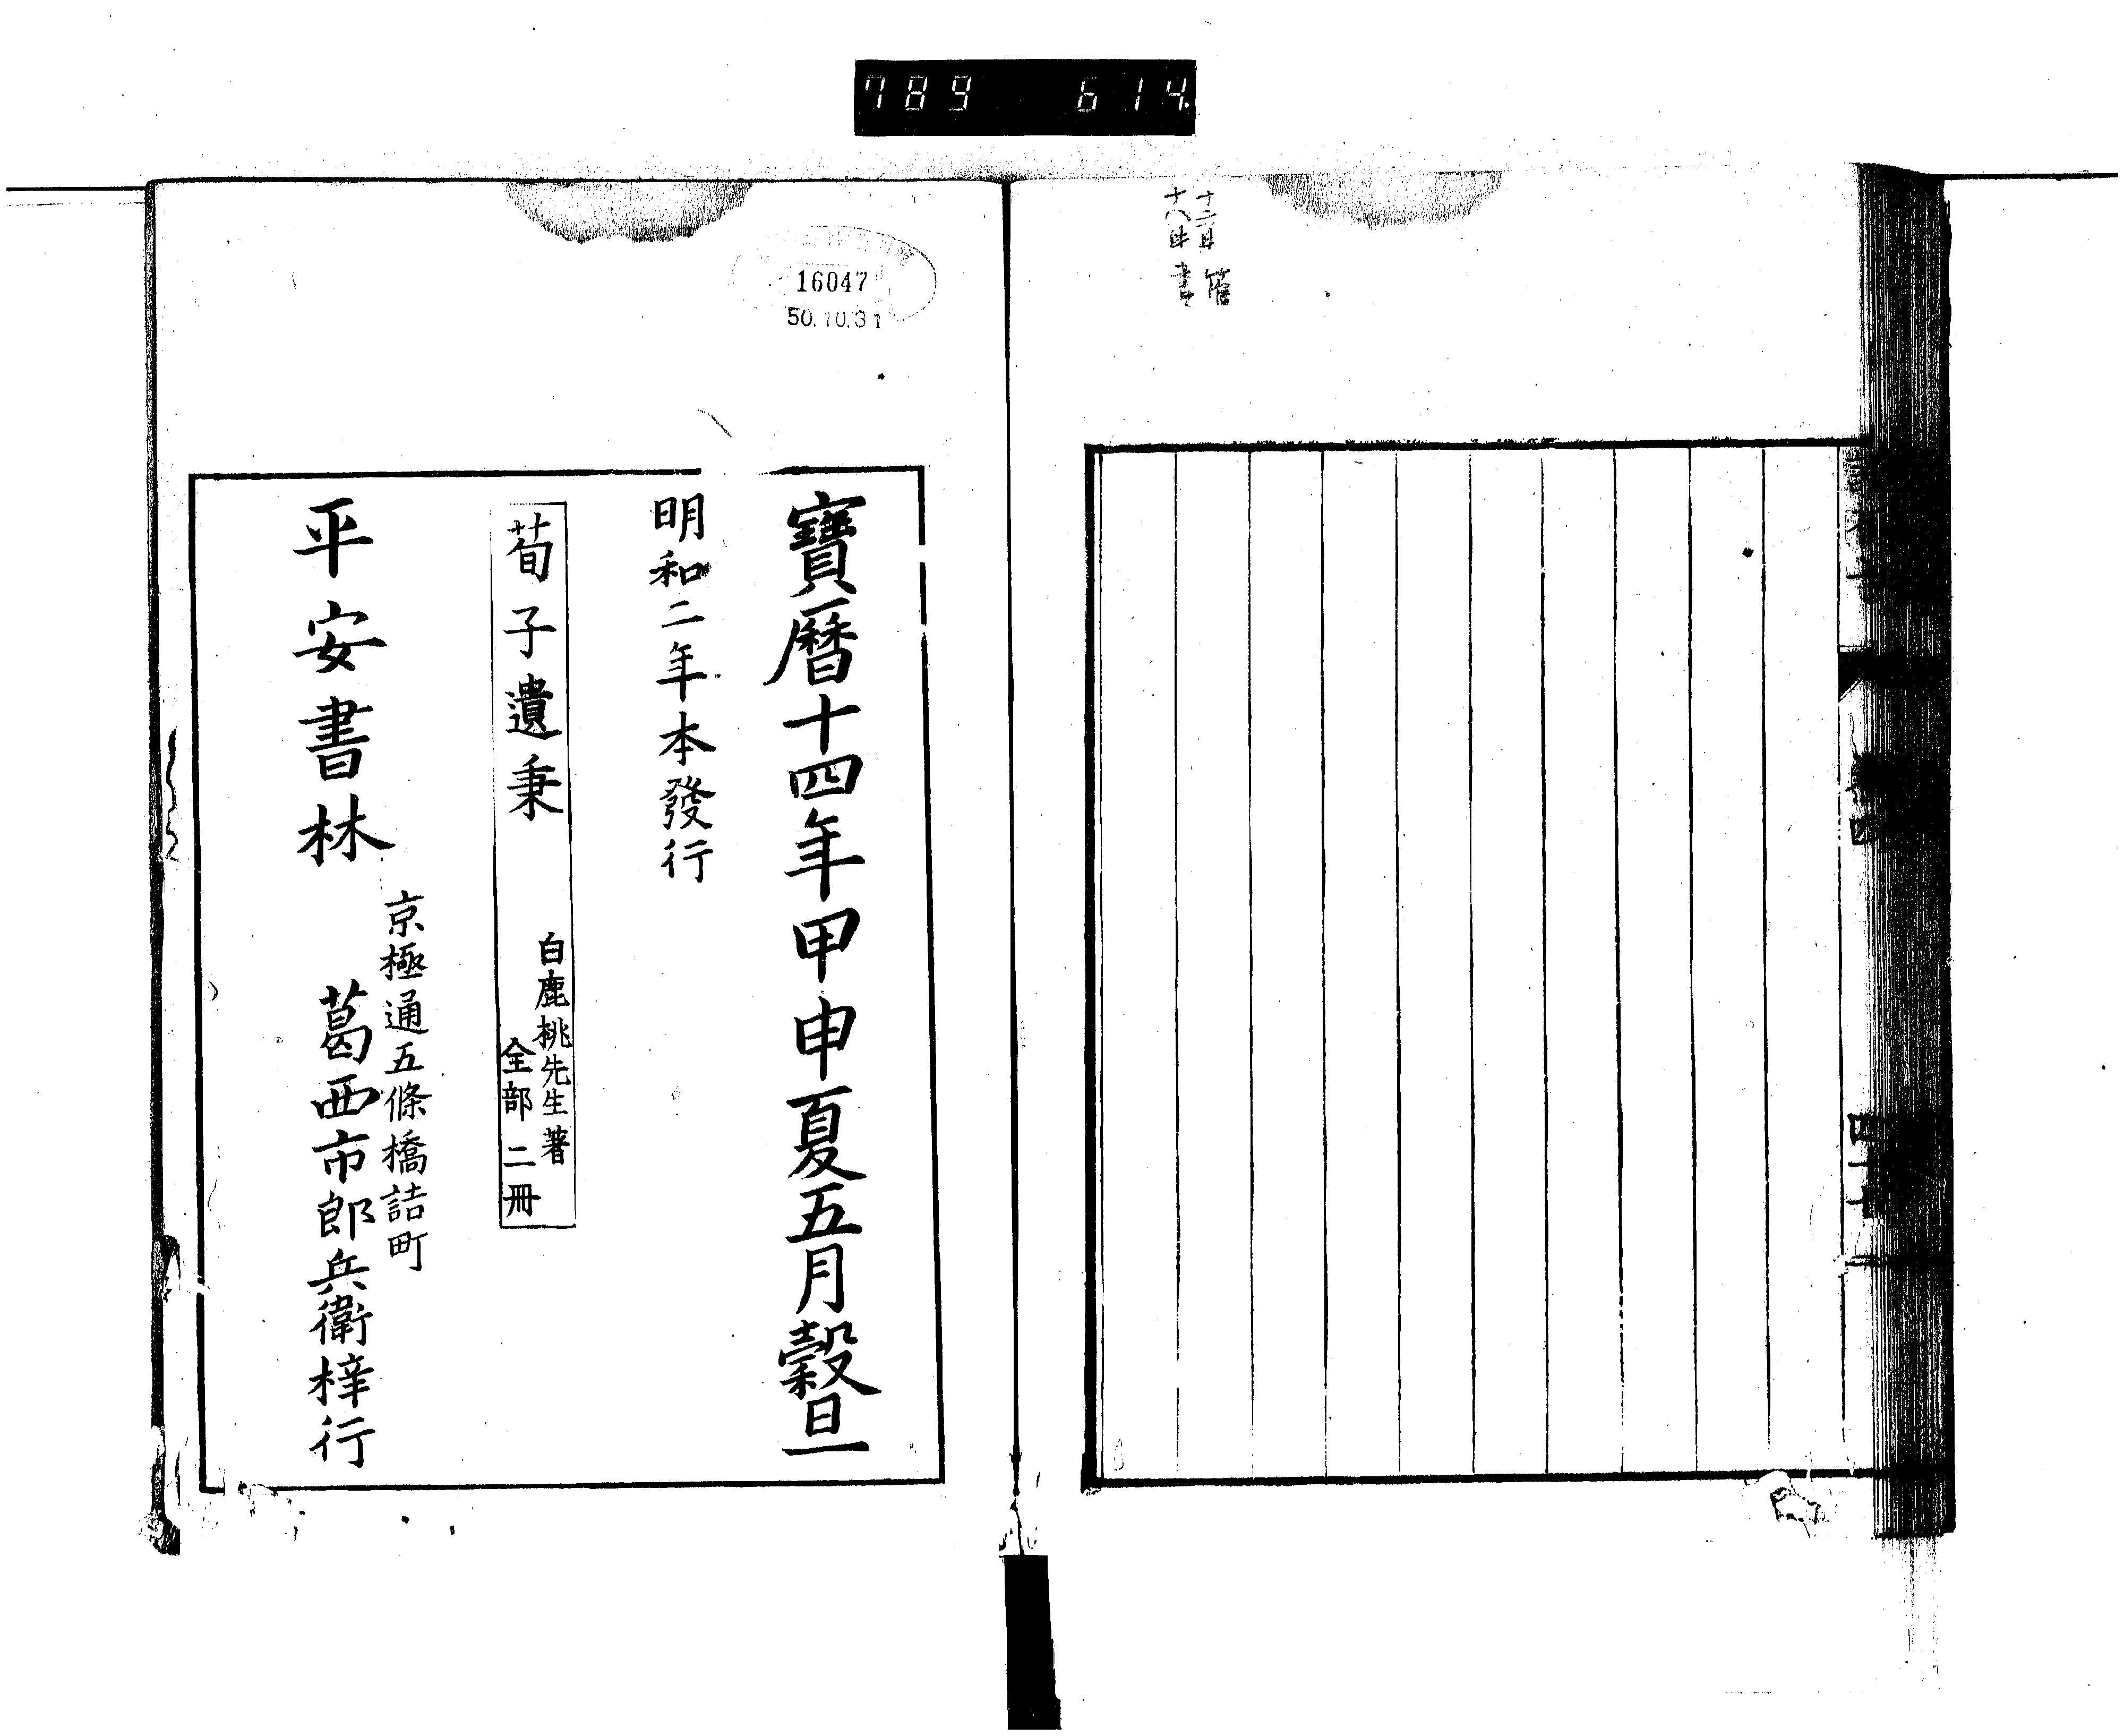 789 614
寶曆十四年甲申夏五月穀旦
明和二年本發行
荀子遺秉
白鹿桃先生著
全部二冊
京極通五條橋詰町
平安書林
葛西市郎兵衛梓行
16047
50.10.31